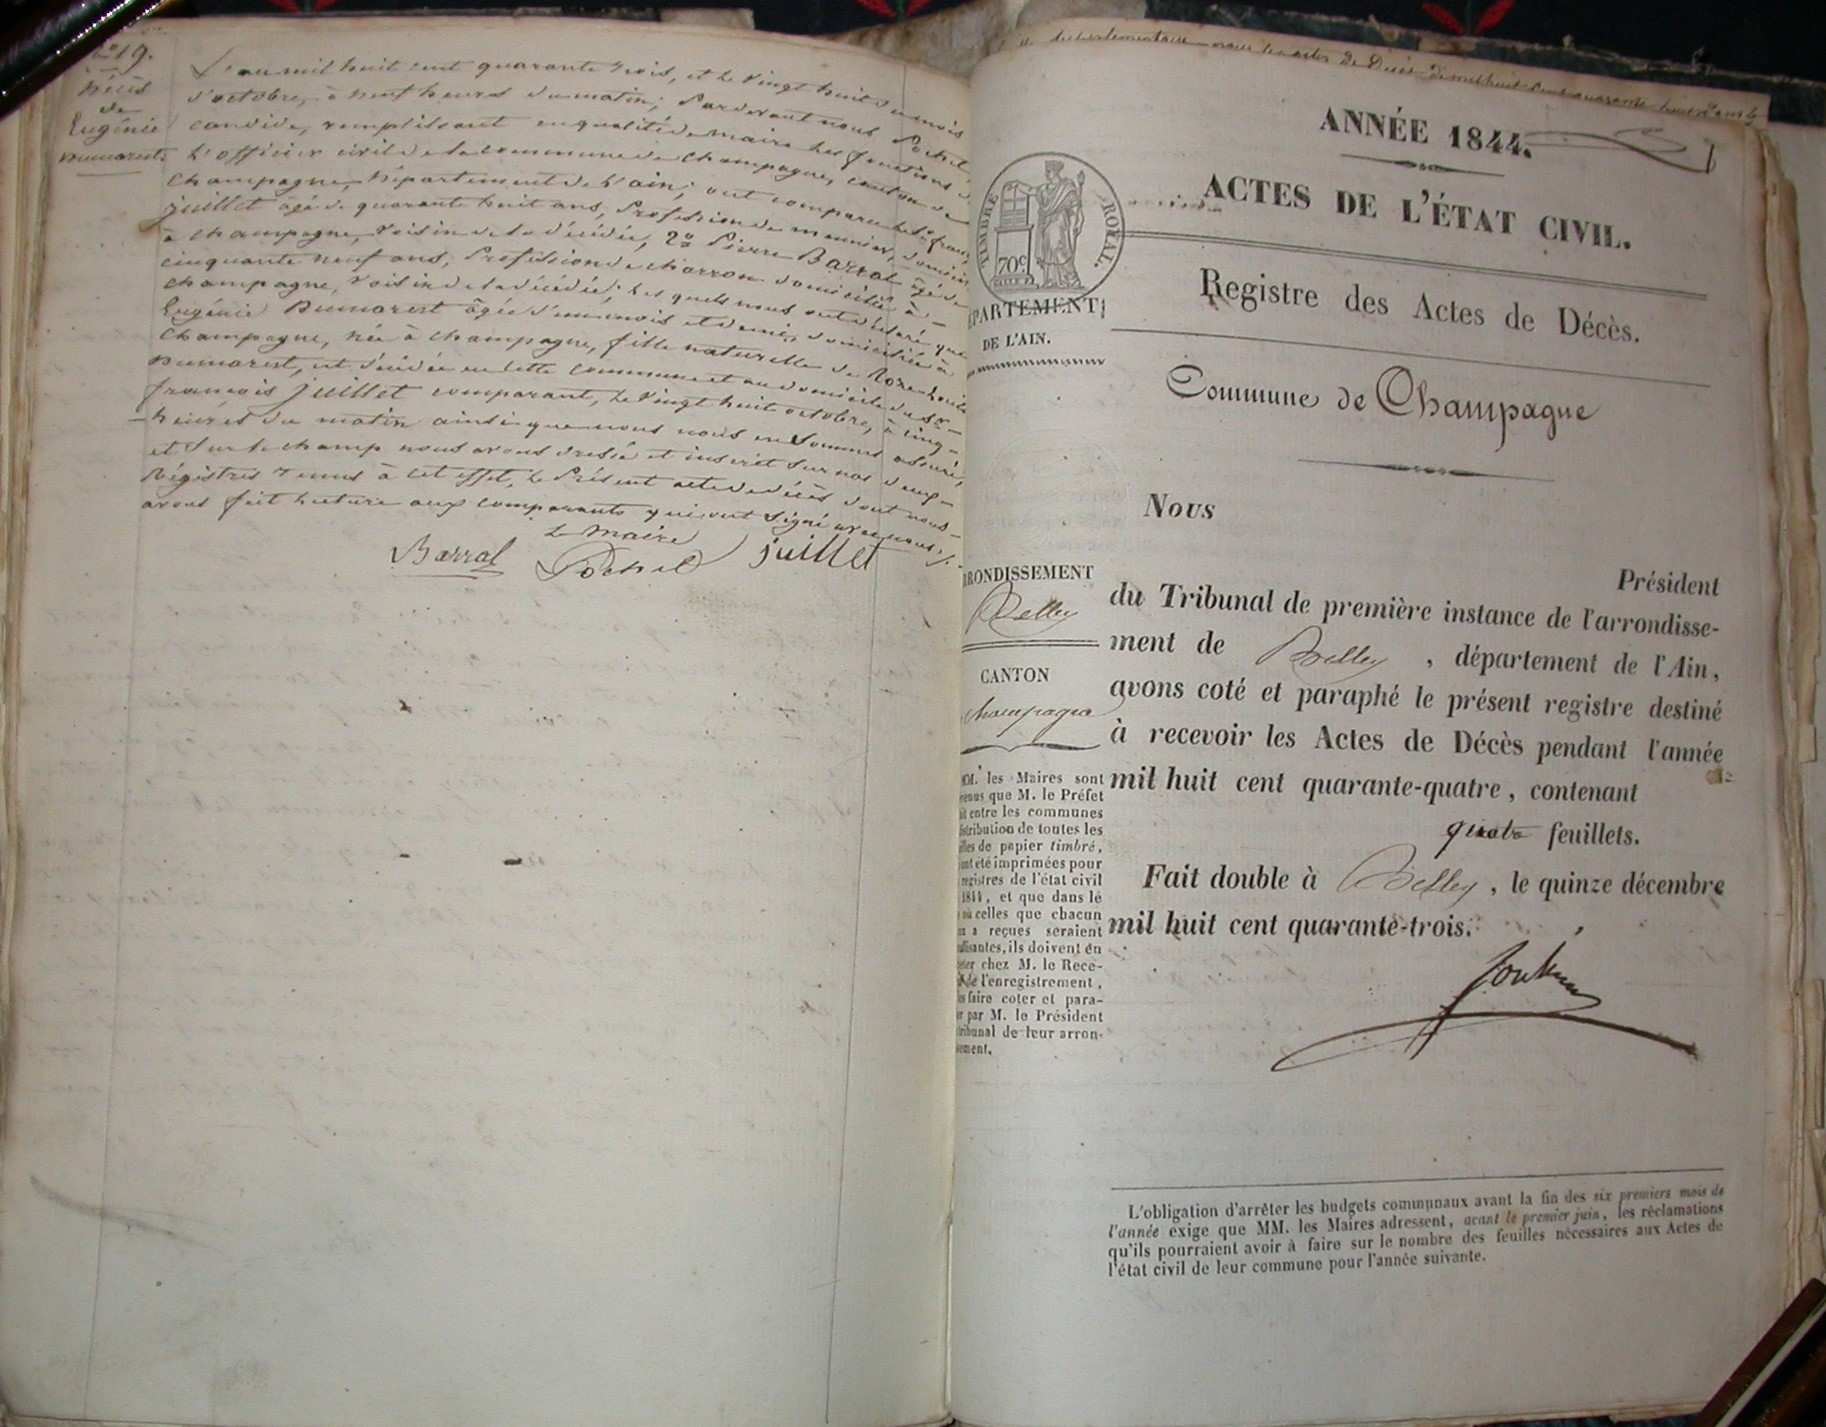 19.
Décès
de
Eugénie
Dumarest
L'an mil huit cent quarante trois, et le vingt huit du mois
d'octobre, à neuf heures du matin; Pardevant nous Pochet
candide, remplissant en qualité de maire les fonctions
d'officier civil de la commune de champagne, canton de
champagne, Département de l'ain; ont comparu
juillet âgé de quarante huit ans, Profession de meunier,
à champagne, voisin de la décédée, 2º Pierre Barral âgé de
cinquante neuf ans, Profession de charron domicilié à
champagne, voisin de la décédée; les quels nous ont déclaré que
Eugénie Dumarest âgée d'un mois et demi, domiciliée à
champagne, née à champagne, fille naturelle de Roze
Dumarest, est décédée en cette commune et au domicile du Sr
françois juillet comparant, le vingt huit octobre, à cinq
heures du matin ainsi que nous nous en sommes assuré,
et sur le champ nous avons dressé et inscrit sur nos deux
Régistres tenus à cet effet, le Présent acte de décès dont nous
avons fait lecture aux comparants qui ont signé avec nous
Le Maire
Barral Pochet juillet
ANNÉE 1844.
ACTES DE L'ÉTAT CIVIL.
TIMBRE ROYAL.
70c
DÉPARTEMENT
DE L'AIN.
Registre des Actes de Décès.
Commune de Champagne
Nous
Président
du Tribunal de première instance de l'arrondisse-
ment de Belley, département de l'Ain,
avons coté et paraphé le présent registre destiné
à recevoir les Actes de Décès pendant l'année
mil huit cent quarante-quatre, contenant
quatre feuillets.
Fait double à Belley, le quinze décembre
mil huit cent quarante-trois.
RRONDISSEMENT
Belley
CANTON
Champagne
MM. les Maires sont
enus que M. le Préfet
it entre les communes
istribution de toutes les
illes de papier timbré,
ont été imprimées pour
registres de l'état civil
1844, et que dans le
où celles que chacun
a reçues seraient
uffisantes, ils doivent en
chez M. le Rece-
de l'enregistrement,
es faire coter et para-
er par M. le Président
tribunal de leur arron-
sement.
L'obligation d'arrêter les budgets communaux avant la fin des six premiers mois de
l'année exige que MM. les Maires adressent, avant le premier juin, les réclamations
qu'ils pourraient avoir à faire sur le nombre des feuilles nécessaires aux Actes de
l'état civil de leur commune pour l'année suivante.